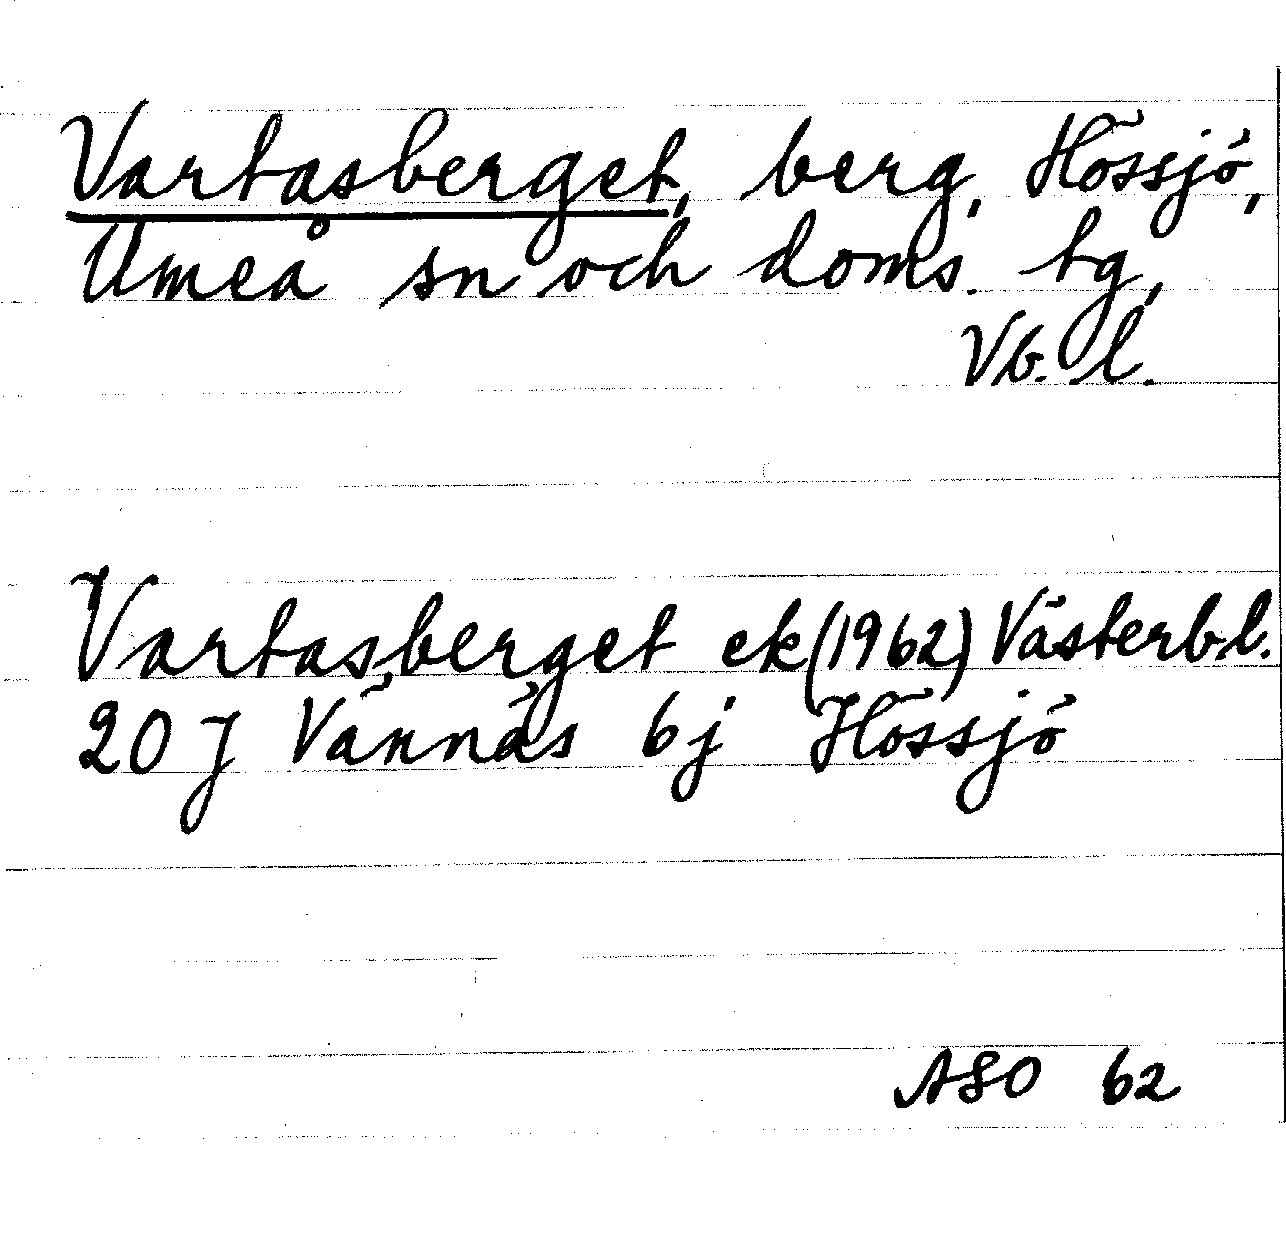 Vartasberget, berg, Hössjö,
Umeå sn och doms. tg,
Vb. l.
Vartasberget ek (1962) Västerb.l.
20 J Vännäs bj Hössjö
ASO 62